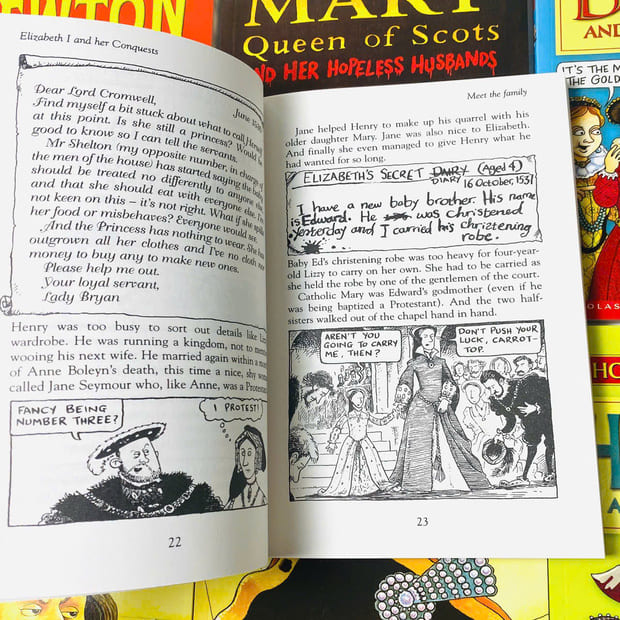 EWTON
MARY
Queen of Scots
AND HER HOPELESS HUSBANDS
AND
IT'S THE M
THE GOLD
Elizabeth I and her Conquests
June 1536
Dear Lord Cromwell,
Find myself a bit stuck about what to call Her
at this point. Is she still a princess? Would be
good to know so I can tell the servants.
Mr Shelton (my opposite number, in charge of
the men of the house) has started saying the
should be treated no differently to anyone
and that she should eat with everyone else. I'm
not keen on this – it's not right. What if she
her food or misbehaves? Everyone would see.
And the Princess has nothing to wear. She has
outgrown all her clothes and I've no cloth nor
money to buy any to make new ones.
Please help me out.
Your loyal servant,
Lady Bryan
Henry was too busy to sort out details like Liz
wardrobe. He was running a kingdom, not to men
wooing his next wife. He married again within a mon
of Anne Boleyn's death, this time a nice, shy wo
called Jane Seymour who, like Anne, was a Protestan
FANCY BEING
NUMBER THREE?
I PROTEST!
22
Meet the family
Jane helped Henry to make up his quarrel with his
older daughter Mary. Jane was also nice to Elizabeth.
And finally she even managed to give Henry what he
had wanted for so long.
ELIZABETH'S SECRET DAIRY (Aged 4)
DIARY 16 October, 1537
I have a new baby brother. His name
is Edward. He was christened
yesterday and I carried his christening
robe.
Baby Ed's christening robe was too heavy for four-year-
old Lizzy to carry on her own. She had to be carried as
she held the robe by one of the gentlemen of the court.
Catholic Mary was Edward's godmother (even if he
was being baptized a Protestant). And the two half-
sisters walked out of the chapel hand in hand.
AREN'T YOU
GOING TO CARRY
ME, THEN?
DON'T PUSH YOUR
LUCK, CARROT-
TOP.
23
OLAS
HO
H
A